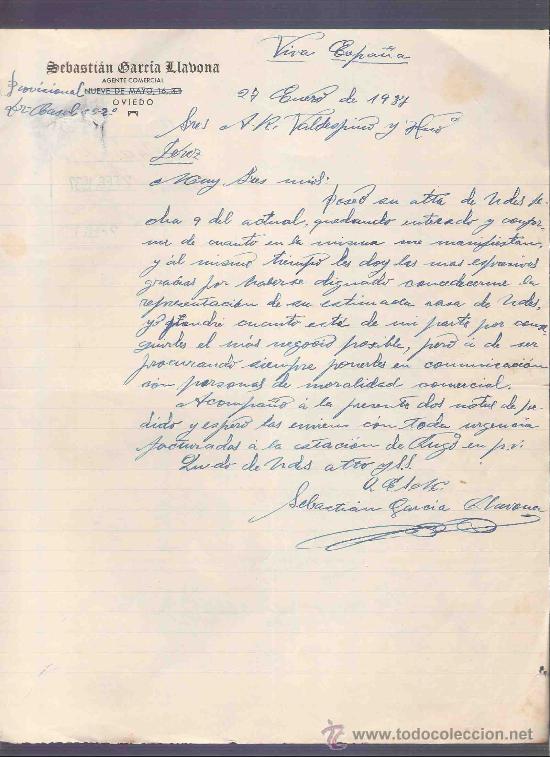 Viva España
Sebastián García Llavona
AGENTE COMERCIAL
NUEVE DE MAYO, 16, 3.º
OVIEDO
Provisional
27 Enero de 1937
Sres A. R. Valdespino y Hnoˢ
Jerez
Muy Sres mios:
Poseo su atta de Udes fe-
cha 9 del actual, quedando enterado y confor-
me de cuanto en la misma me manifiestan,
y al mismo tiempo les doy las mas expresivas
gracias por haberse dignado concederme la
representación de su estimada casa de Udes,
y pondré cuanto esté de mi parte por conse-
guirles el más negocio posible, pero á de ser
procurando siempre ponerles en comunicación
con personas de moralidad comercial.
Acompaño á la presente dos notas de pe-
dido y espero las envien con toda urgencia
facturados á la estación de Lugo en p.v.
Quedo de Udes atto y S.S.
Q E S M.
Sebastián García Llavona
www.todocoleccion.net